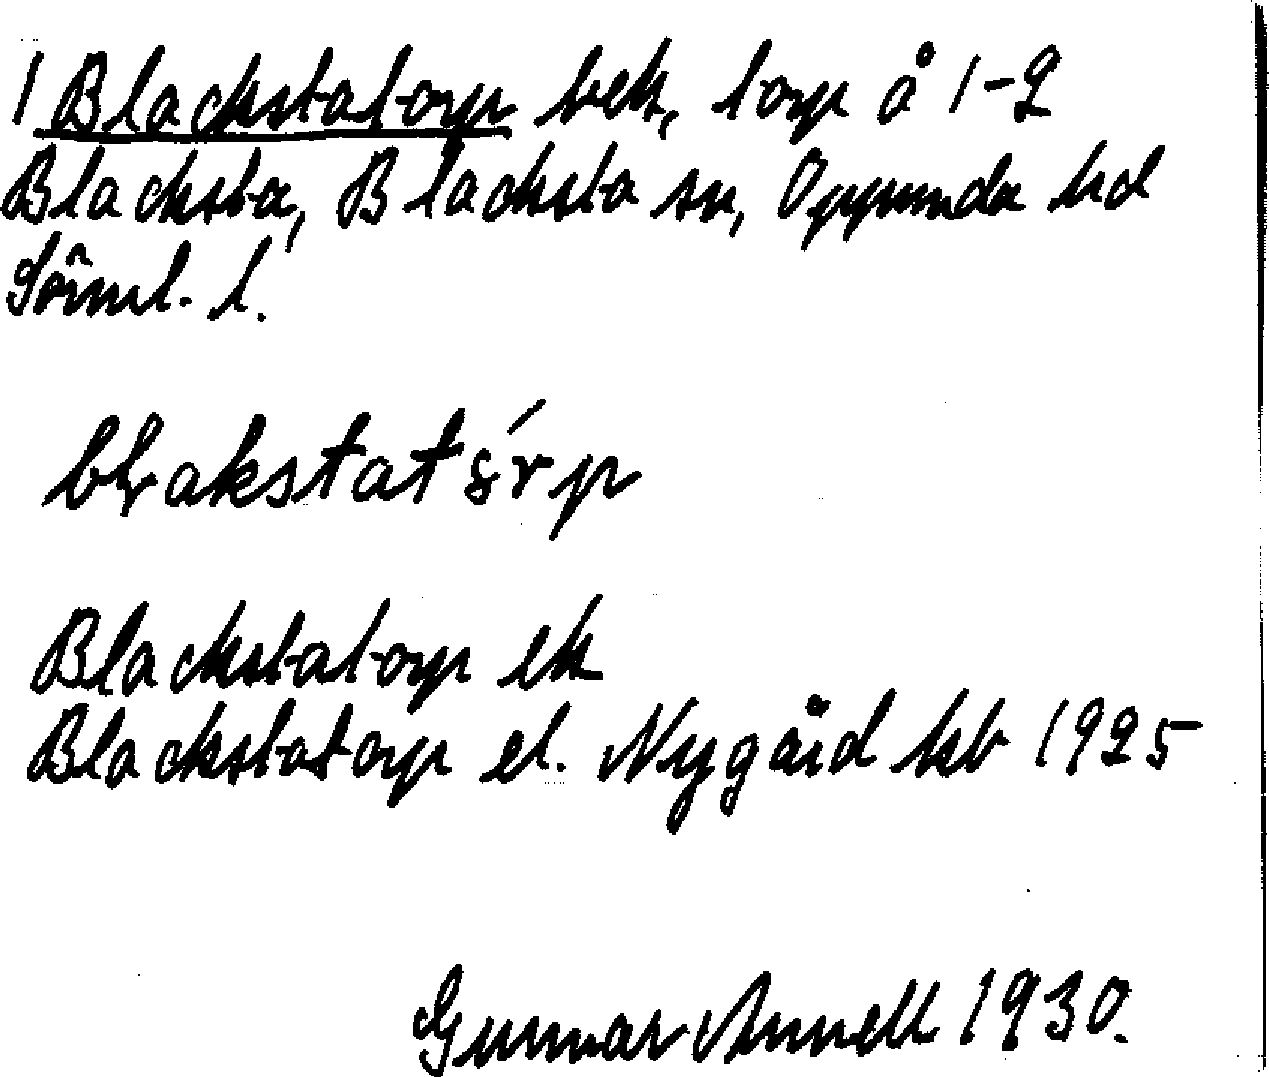 1 Blackstatorp bek, torp å 1-2
Blacksta, Blacksta sn, Oppunda hd
Sörml. l.
Blackstatorp ek
Blackstatorp el. Nygård kb 1925
Gunnar Annell 1930.